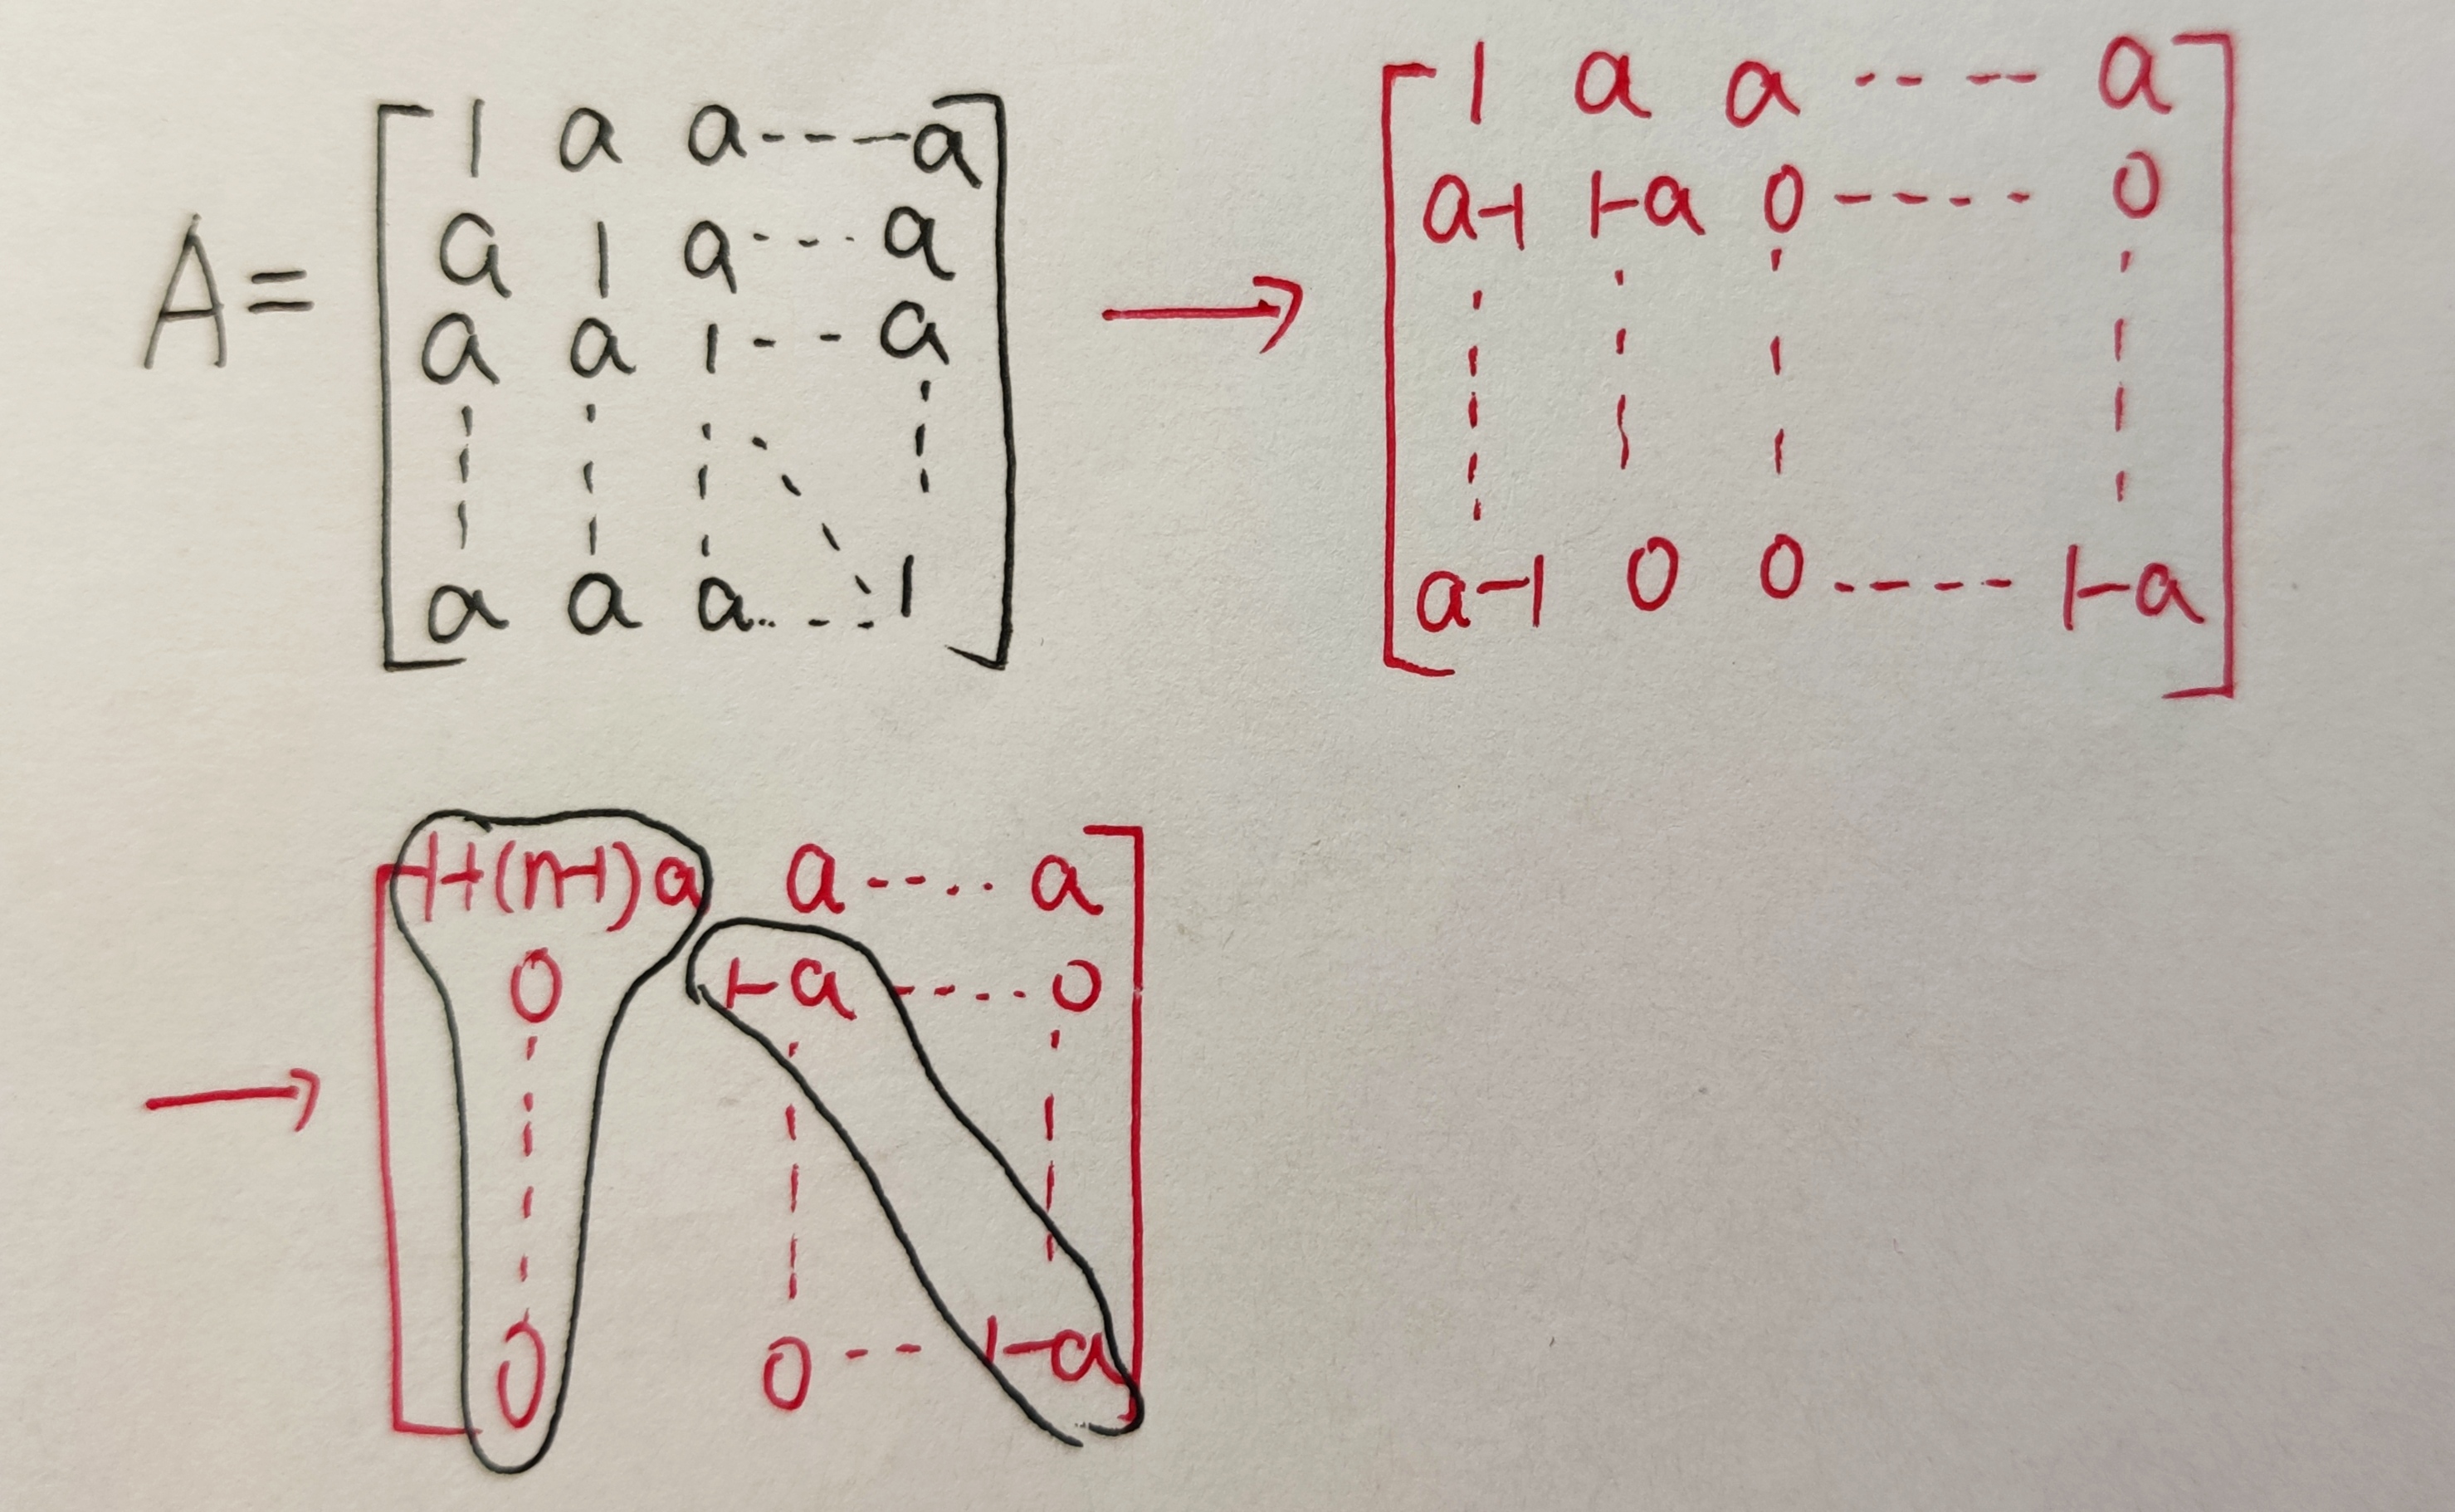 A = [ 1 a a ---- a ] → [ 1 a a ---- a ]
[ a 1 a --- a ] [ a-1 1-a 0 ---- 0 ]
[ a a 1 --- a ]
[ a a a ---- 1 ] [ a-1 0 0 ---- 1-a ]
→ [ 1+(n-1)a a ---- a ]
[ 0 1-a ---- 0 ]
[ 0 0 --- 1-a ]